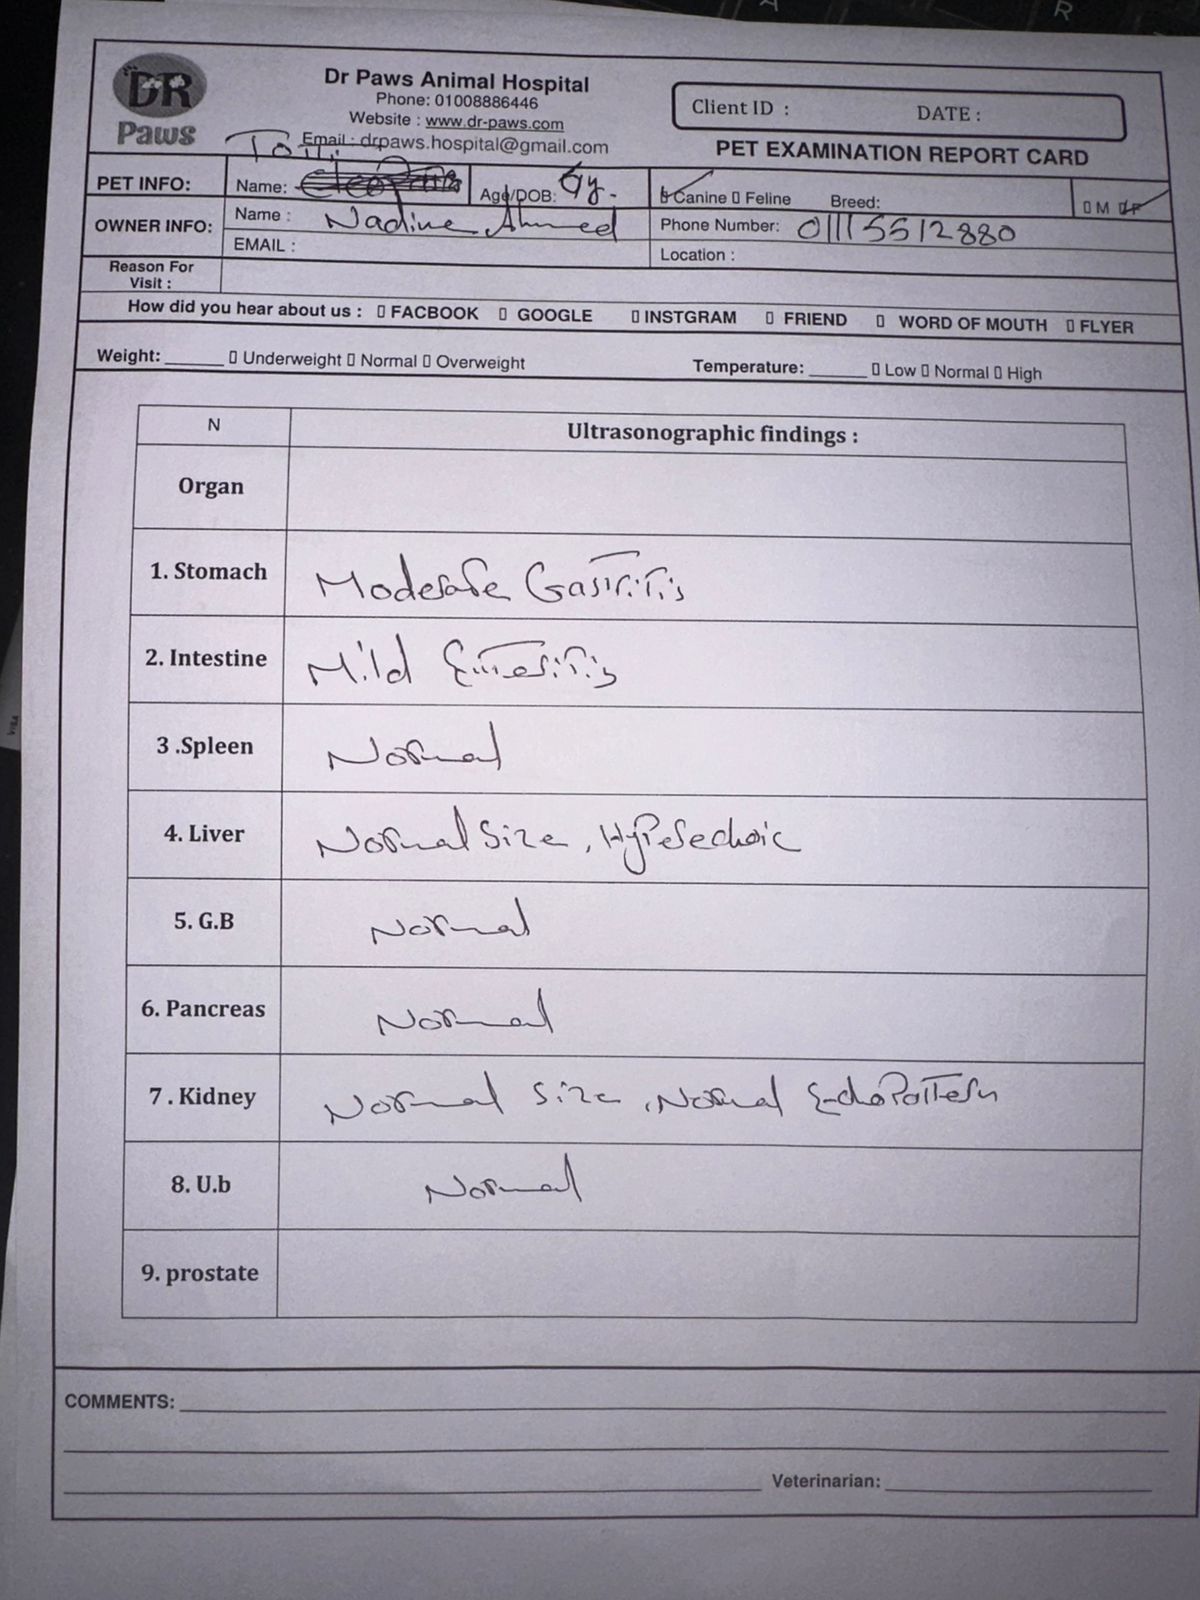 DR
Paws
Dr Paws Animal Hospital
Phone: 01008886446
Website : www.dr-paws.com
Email : drpaws.hospital@gmail.com
Client ID : DATE :
PET EXAMINATION REPORT CARD
PET INFO: Name: Age/DOB: Canine Feline Breed: M F
OWNER INFO: Name : Nadine Ahmed Phone Number: 01115512880
EMAIL : Location :
Reason For
Visit :
How did you hear about us : FACBOOK GOOGLE INSTGRAM FRIEND WORD OF MOUTH FLYER
Weight: Underweight Normal Overweight Temperature: Low Normal High
N Ultrasonographic findings :
Organ
1. Stomach Moderate Gastritis
2. Intestine Mild Enteritis
3 .Spleen Normal
4. Liver Normal Size, Hyperechoic
5. G.B Normal
6. Pancreas Normal
7 . Kidney Normal Size, Normal EchoPattern
8. U.b Normal
9. prostate
COMMENTS:
Veterinarian: